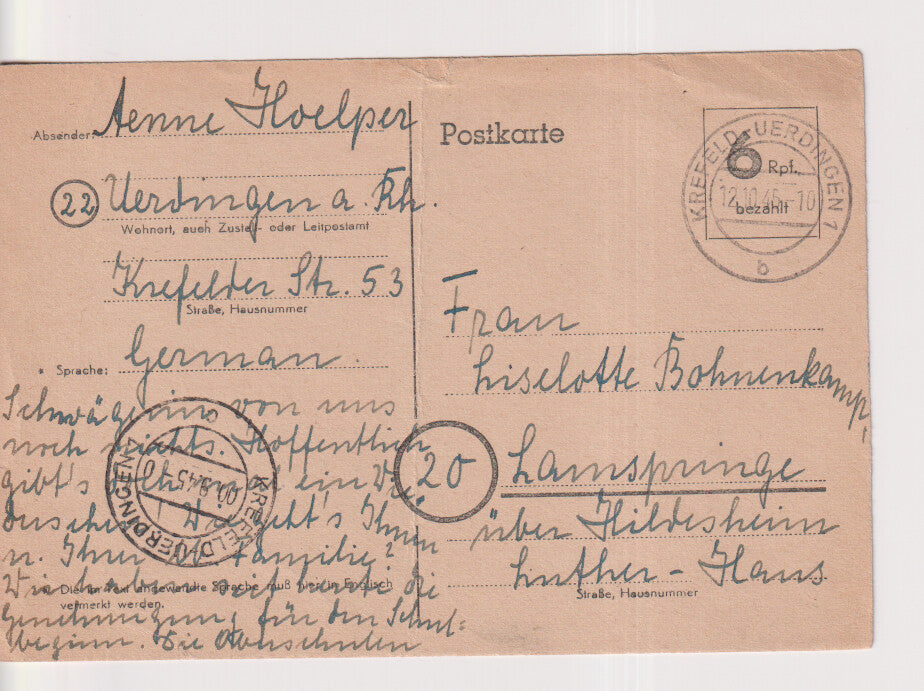 Absender: Aenne Hoelper
22 Uerdingen a. Rh.
Wohnort, auch Zustell- oder Leitpostamt
Krefelder Str. 53
Straße, Hausnummer
* Sprache: German.
Schwägerin von uns
noch nichts. Hoffentlich
gibt's ein
Wie geht's Ihnen
u. Ihrer Familie?
Wir haben hier die
* Die im Text angewandte Sprache muß hier in Englisch
vermerkt werden.
Genehmigung für den Schul-
beginn. Die Oberschulen
KREFELD-UERDINGEN
Postkarte
6 Rpf.
bezahlt
KREFELD-UERDINGEN 1
12.10.45-10
b
Frau
Liselotte Bohnenkamp
20 Lamspringe
über Hildesheim
Luther-Haus
Straße, Hausnummer